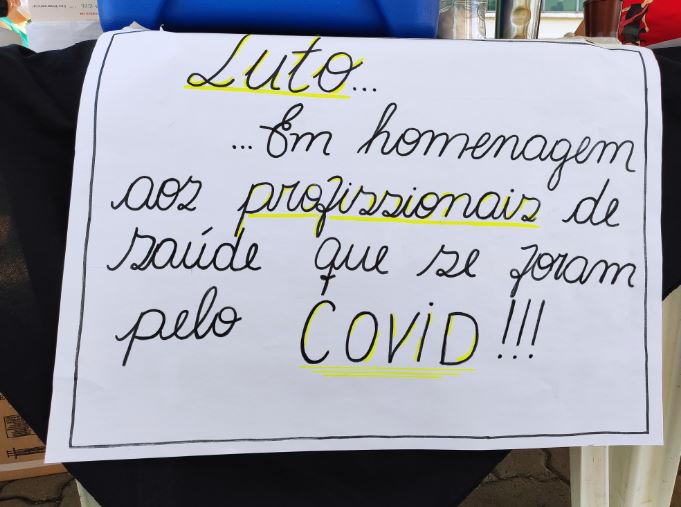 Luto...
...Em homenagem
aos profissionais de
saúde que se foram
pelo COViD!!!